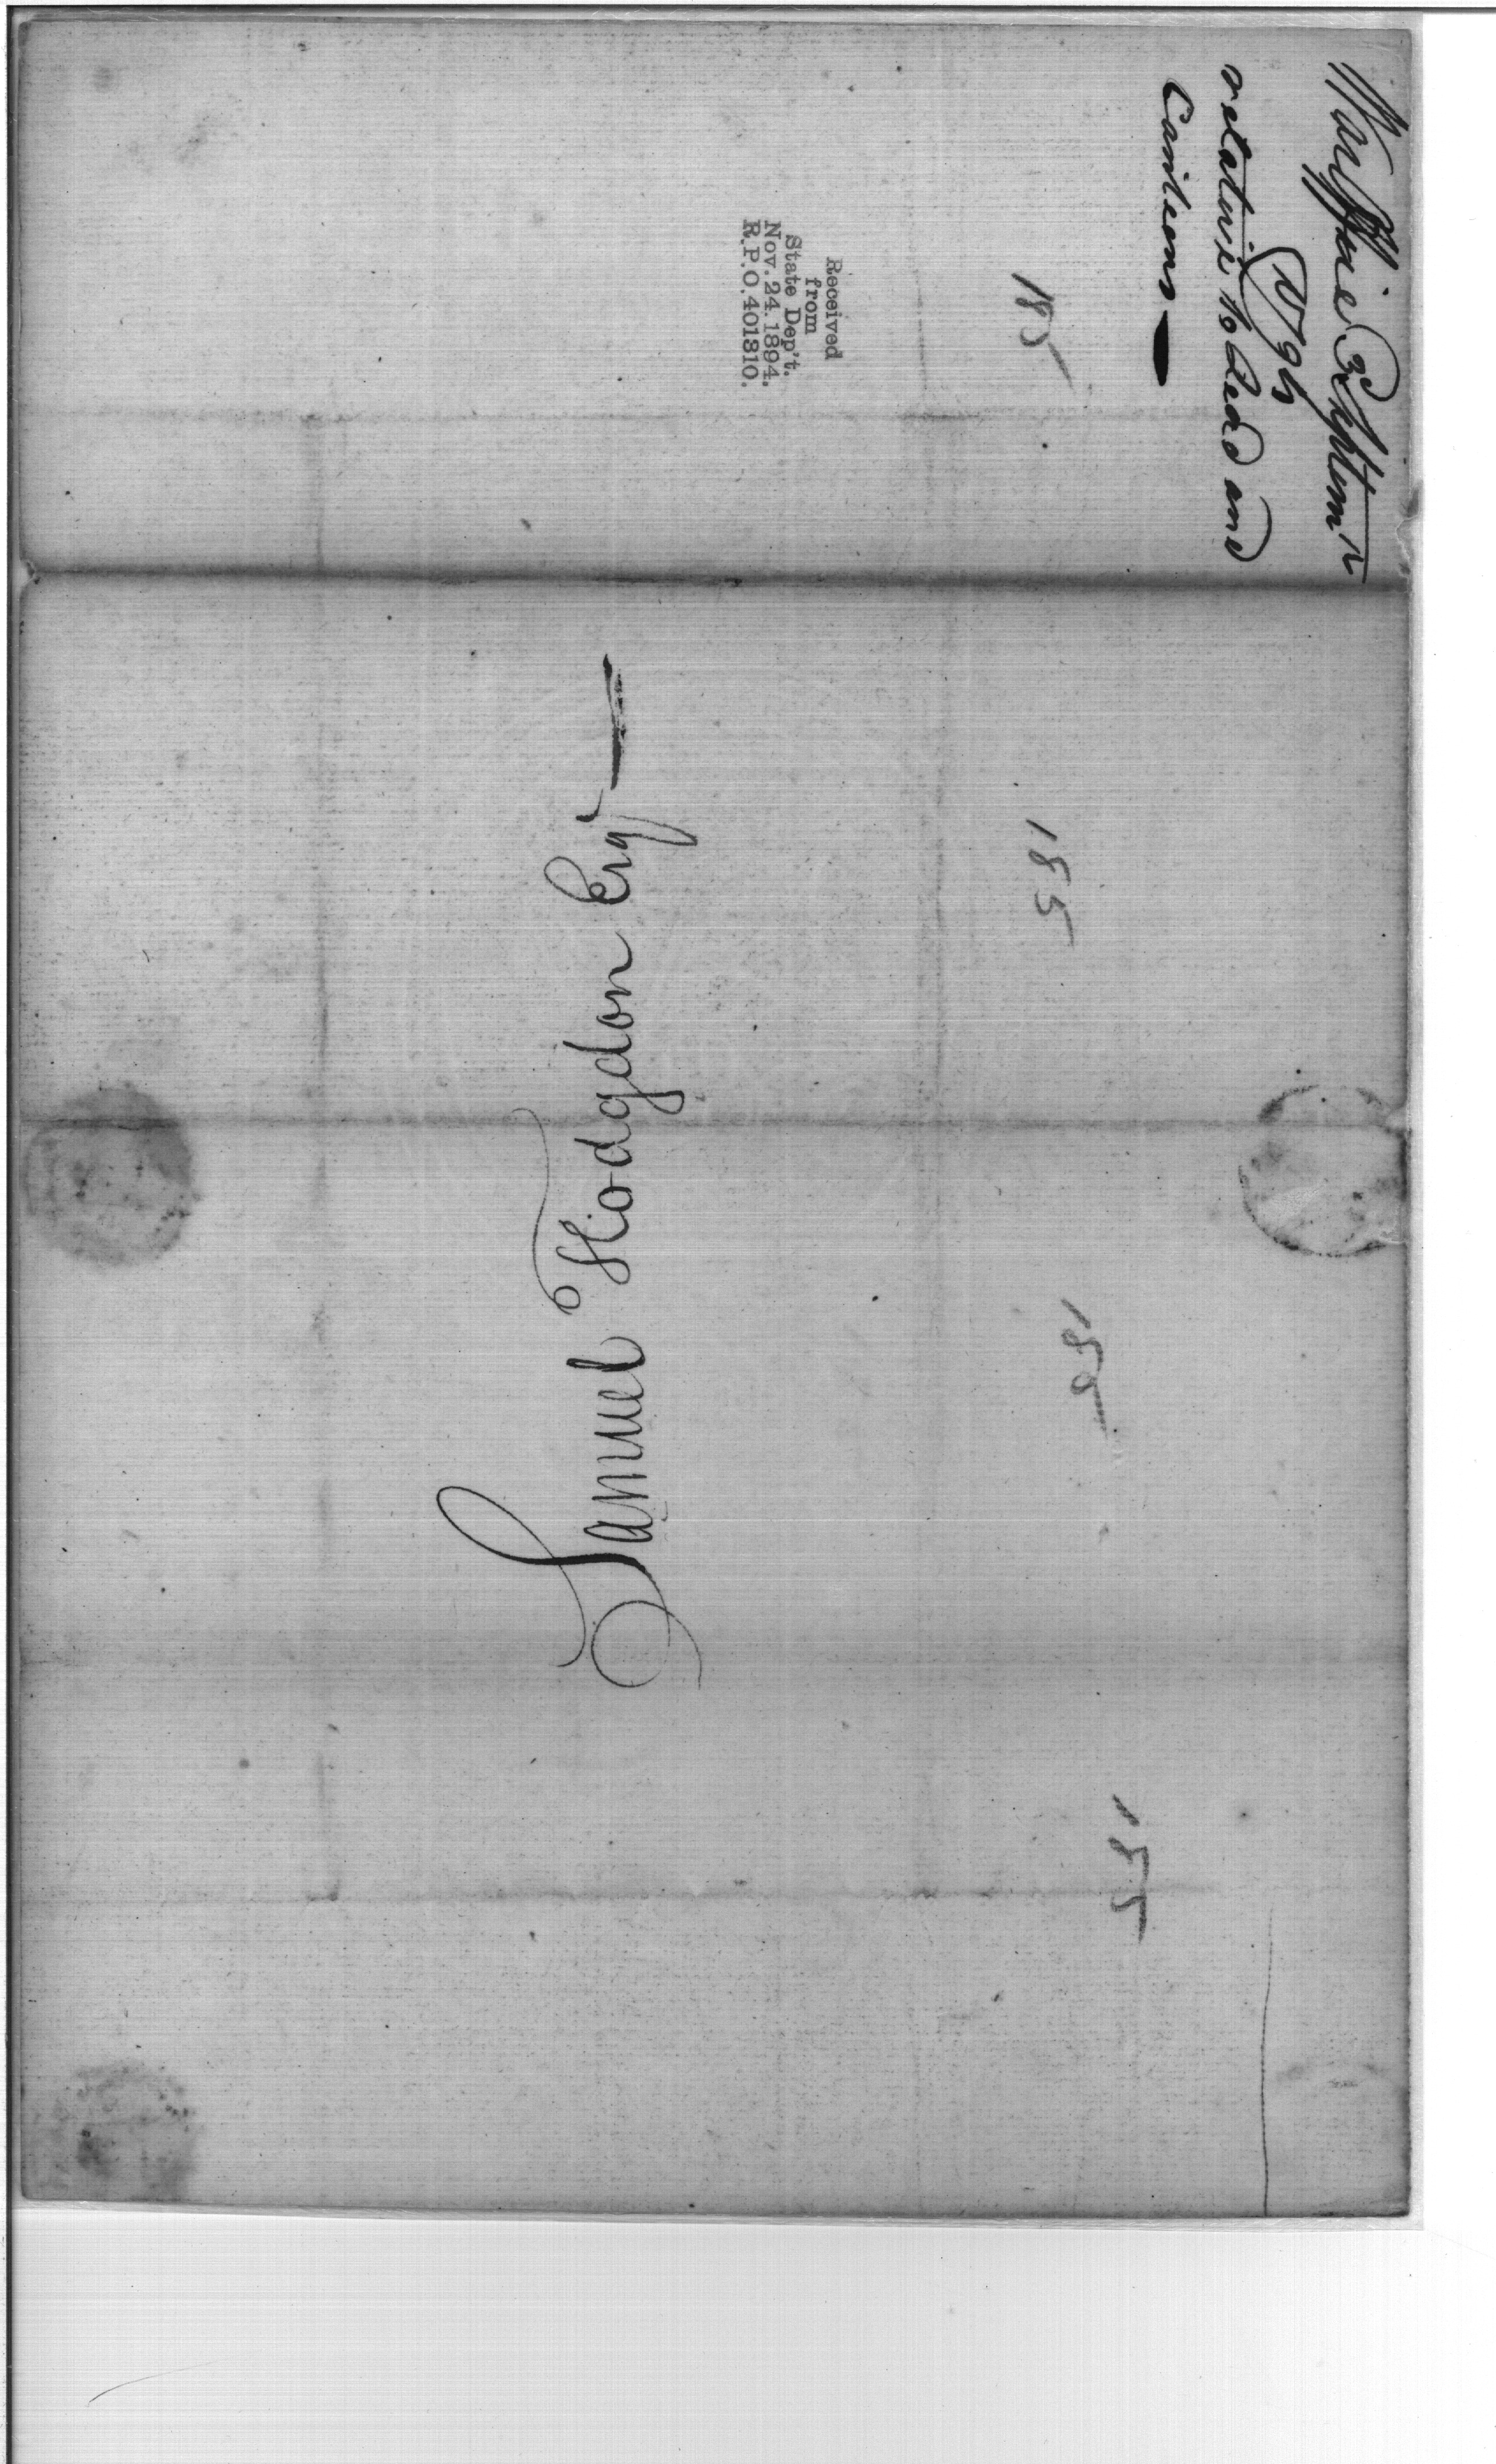 War Office 3d Septemr
1794
relative to Lead and
Canteens —
185
Received
from
State Dep't.
Nov. 24. 1894.
R.P.O. 401310.
Samuel Hodgdon Esqr —
185
185
185